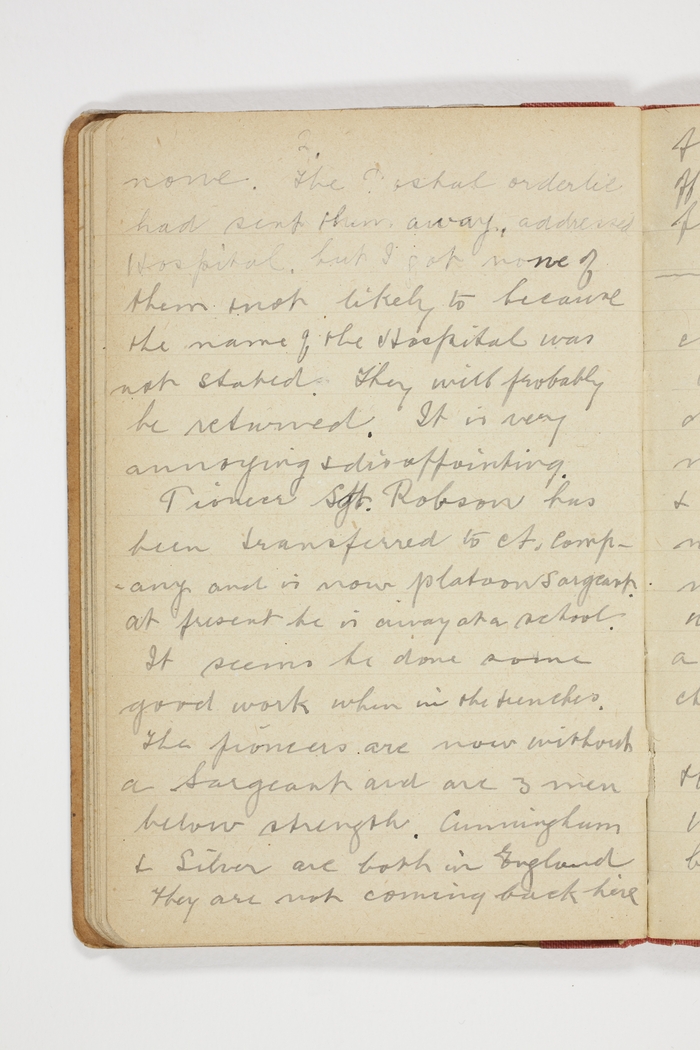 none. The ostal orderlie
had sent them away, addressed
Hospital, but I got none of
them & not likely to because
the name of the Hospital was
not stated. They will probably
be returned. It is very
annoying & disappointing.
Pioneer Sgt. Robson has
been transferred to Ct. Comp-
-any and is now platoon Sargeant.
at present he is away at a school.
It seems he done some
good work when in the trenches.
The pioneers are now without
a Sargeant and are 3 men
below strength. Cunningham
& Silver are both in England
They are not coming back here